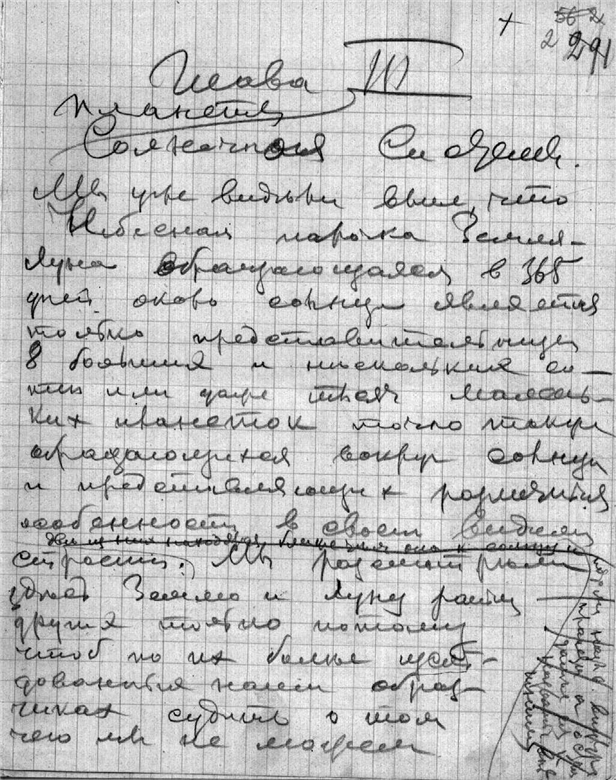 + 56 2
2 291
Глава III
Планеты
Солнечная Система.
Мы уже видели выше, что
Небесная парочка Земля-
Луна обращающаяся в 365
дней около солнца является
только представительницей
8 больших и нескольких со-
тен или даже тысяч малень-
ких планеток точно также
обращающихся вокруг солнца
и представляющих различныя
особенности в своем видимом
строении. Мы разсматривали
Землю и Луну раньше
других только потому
чтоб по их более изсле-
дованным нами образ-
чикам судить о том
чего мы не можем